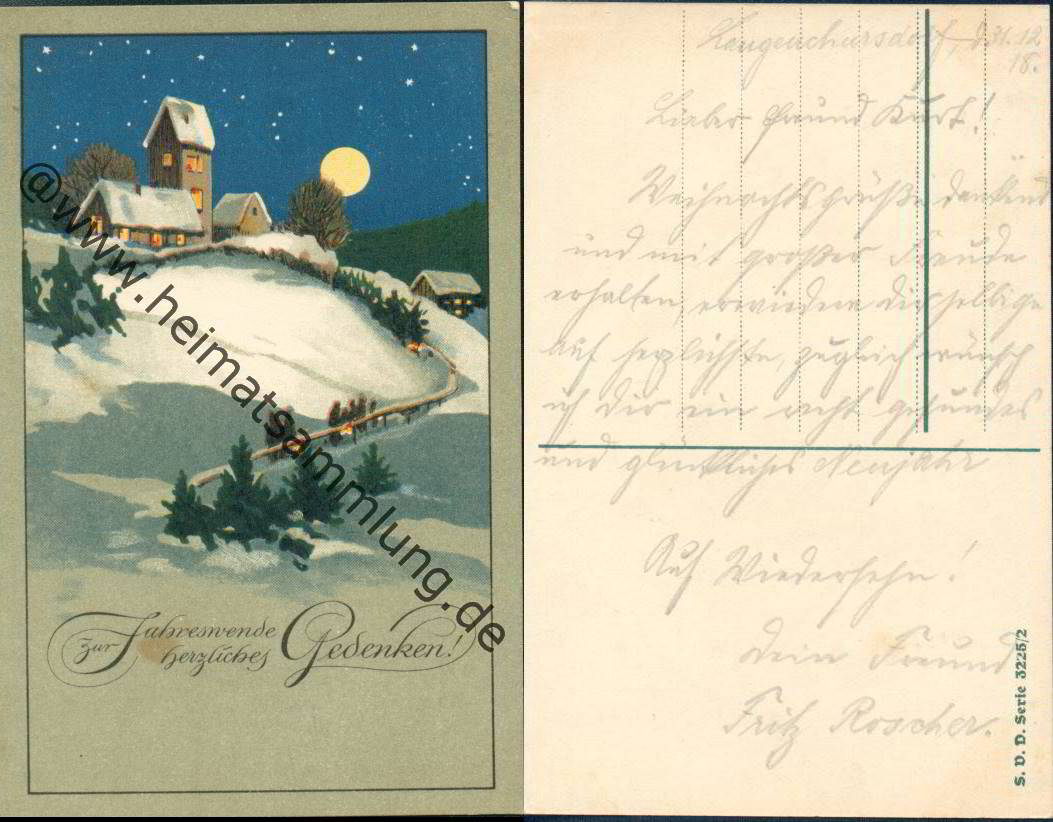 zur Jahreswende
herzliches Gedenken!
@www.heimatsammlung.de
Langenchursdorf, d. 31.12.
18.
Lieber Freund Kurt!
Weihnachtsgrüße dankend
und mit großer Freude
erhalten, erwiedere dieselbige
auf herzlichste, zugleich wünsch
ich dir ein recht gesundes
und glückliches Neujahr
Auf Wiedersehn!
Dein Freund
Fritz Roscher.
S. V. D. Serie 3225/2